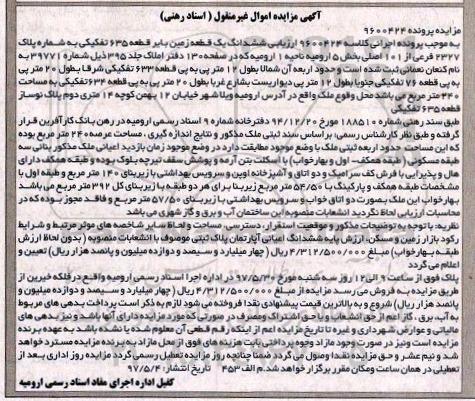 آگهی مزایده اموال غیرمنقول ( اسناد رهنی )
مزایده پرونده ۹۶۰۰۴۲۴
به موجب پرونده اجرائی کلاسه ۹۶۰۰۴۲۴ ارزیابی ششدانگ یک قطعه زمین بایر قطعه ۶۳۵ تفکیکی به شماره پلاک
۲۳۲۷ فرعی از ۱۰۱ اصلی بخش ۵ ارومیه ناحیه ۱ ارومیه که در صفحه ۱۳۰ دفتر املاک جلد ۳۹۵ ذیل شماره ۳۹۷۷۱ به
نام کنعان نعمائی ثبت شده است و حدود اربعه آن شمالا بطول ۱۲ متر پی به پی قطعه ۶۳۳ تفکیکی شرقا بطول ۲۰ متر پی
به پی قطعه ۷۶ تفکیکی جنوبا بطول ۱۲ متر پی دیواریست بشارع غربا بطول ۲۰ متر پی به پی قطعه ۶۳۴ تفکیکی به مساحت
۲۴۰ متر مربع می باشد محل وقوع ملک واقع در آدرس ارومیه ویلاشهر خیابان ۱۲ بهمن کوچه ۱۴ متری دوم پلاک نوساز
قطعه ۶۳۵ تفکیکی
طبق سند رهنی شماره ۱۸۸۵۱۰ مورخ ۹۴/۱۲/۲۰ دفترخانه شماره ۹ اسناد رسمی ارومیه در رهن بانک کارآفرین قرار
گرفته و طبق نظر کارشناس رسمی؛ بر اساس سند ثبتی ملک مذکور و نتایج اندازه گیری ، مساحت عرصه ۲۴۰ متر مربع بوده
که این مساحت حدود اربعه ثبتی ملک با وضع موجود مطابقت دارد در وضع موجود زمان بازدید اعیانی ملک مذکور بنائی سه
طبقه مسکونی (طبقه همکف- اول و بهارخواب) با اسکلت بتن آرمه و پوشش سقف تیرچه بلوک بوده و طبقه همکف دارای
هال و پذیرایی با فرش کف سرامیک و دو اتاق و آشپزخانه اوپن و سرویس بهداشتی با زیربنای ۱۴۰ متر مربع و طبقه اول با
مشخصات طبقه همکف و پارکینگ با ۵۴/۵۰ متر مربع زیربنا برای هر دو طبقه با زیربنای کل ۳۹۲ متر مربع می باشد
بهارخواب این ملک بصورت دو اتاق خواب و سرویس بهداشتی با زیربنای ۵۷/۵۰ متر مربع و فاقد مجوز بوده که در
محاسبات ارزیابی لحاظ نگردید انشعابات منصوبه این ساختمان آب و برق و گاز شهری می باشد
نظریه: با توجه به توضیحات مذکور و موقعیت استقرار، دسترسی، مساحت و لحاظ سایر شاخصه های موثر مرتبط و شرایط
رکود بازار زمین و مسکن، ارزش پایه ششدانگ اعیانی آپارتمان پلاک ثبتی موصوف با انشعابات منصوبه (بدون لحاظ ارزش
طبقه بهارخواب) مبلغ ۴/۳۱۲/۵۰۰/۰۰۰ ریال (چهار میلیارد و سیصد و دوازده میلیون و پانصد هزار ریال) تعیین و
اعلام می گردد
پلاک فوق از ساعت ۹ الی ۱۲ روز سه شنبه مورخ ۹۷/۵/۳۰ در اداره اجرا اسناد رسمی ارومیه واقع در فلکه خیرین از
طریق مزایده به فروش می رسد مزایده از مبلغ ۴/۳۱۲/۵۰۰/۰۰۰ ریال (چهار میلیارد و سیصد و دوازده میلیون و
پانصد هزار ریال) شروع و به بالاترین قیمت پیشنهادی نقدا فروخته می شود لازم به ذکر است پرداخت بدهی های مربوط
به آب، برق ، گاز اعم از حق انشعاب و یا حق اشتراک و مصرف در صورتی که مورد مزایده دارای آنها باشد و نیز بدهی های
مالیاتی و عوارض شهرداری و غیره تا تاریخ مزایده اعم از اینکه رقم قطعی آن معلوم شده یا نشده باشد به عهده برنده
مزایده است و نیز در صورت وجود مازاد وجوه پرداختی بابت هزینه های فوق از محل مازاد به برنده مزایده مسترد خواهد
شد و نیم عشر و حق مزایده نقدا وصول می گردد ضمنا چنانچه روز مزایده تعطیل رسمی گردد مزایده روز اداری بعد از
تعطیلی در همان ساعت و مکان مقرر برگزار خواهد شد.م الف ۴۵۳ تاریخ انتشار: ۹۷/۵/۴
کفیل اداره اجرای مفاد اسناد رسمی ارومیه